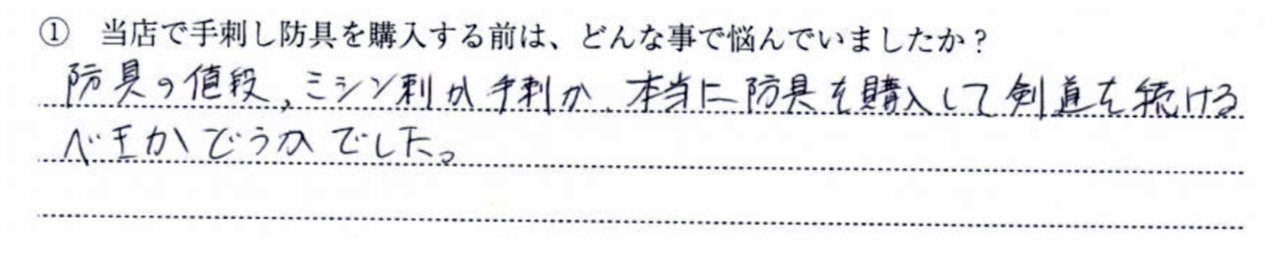 ① 当店で手刺し防具を購入する前は、どんな事で悩んでいましたか？
防具の値段、ミシン刺か手刺か、本当に防具を購入して剣道を続ける
べきかどうかでした。